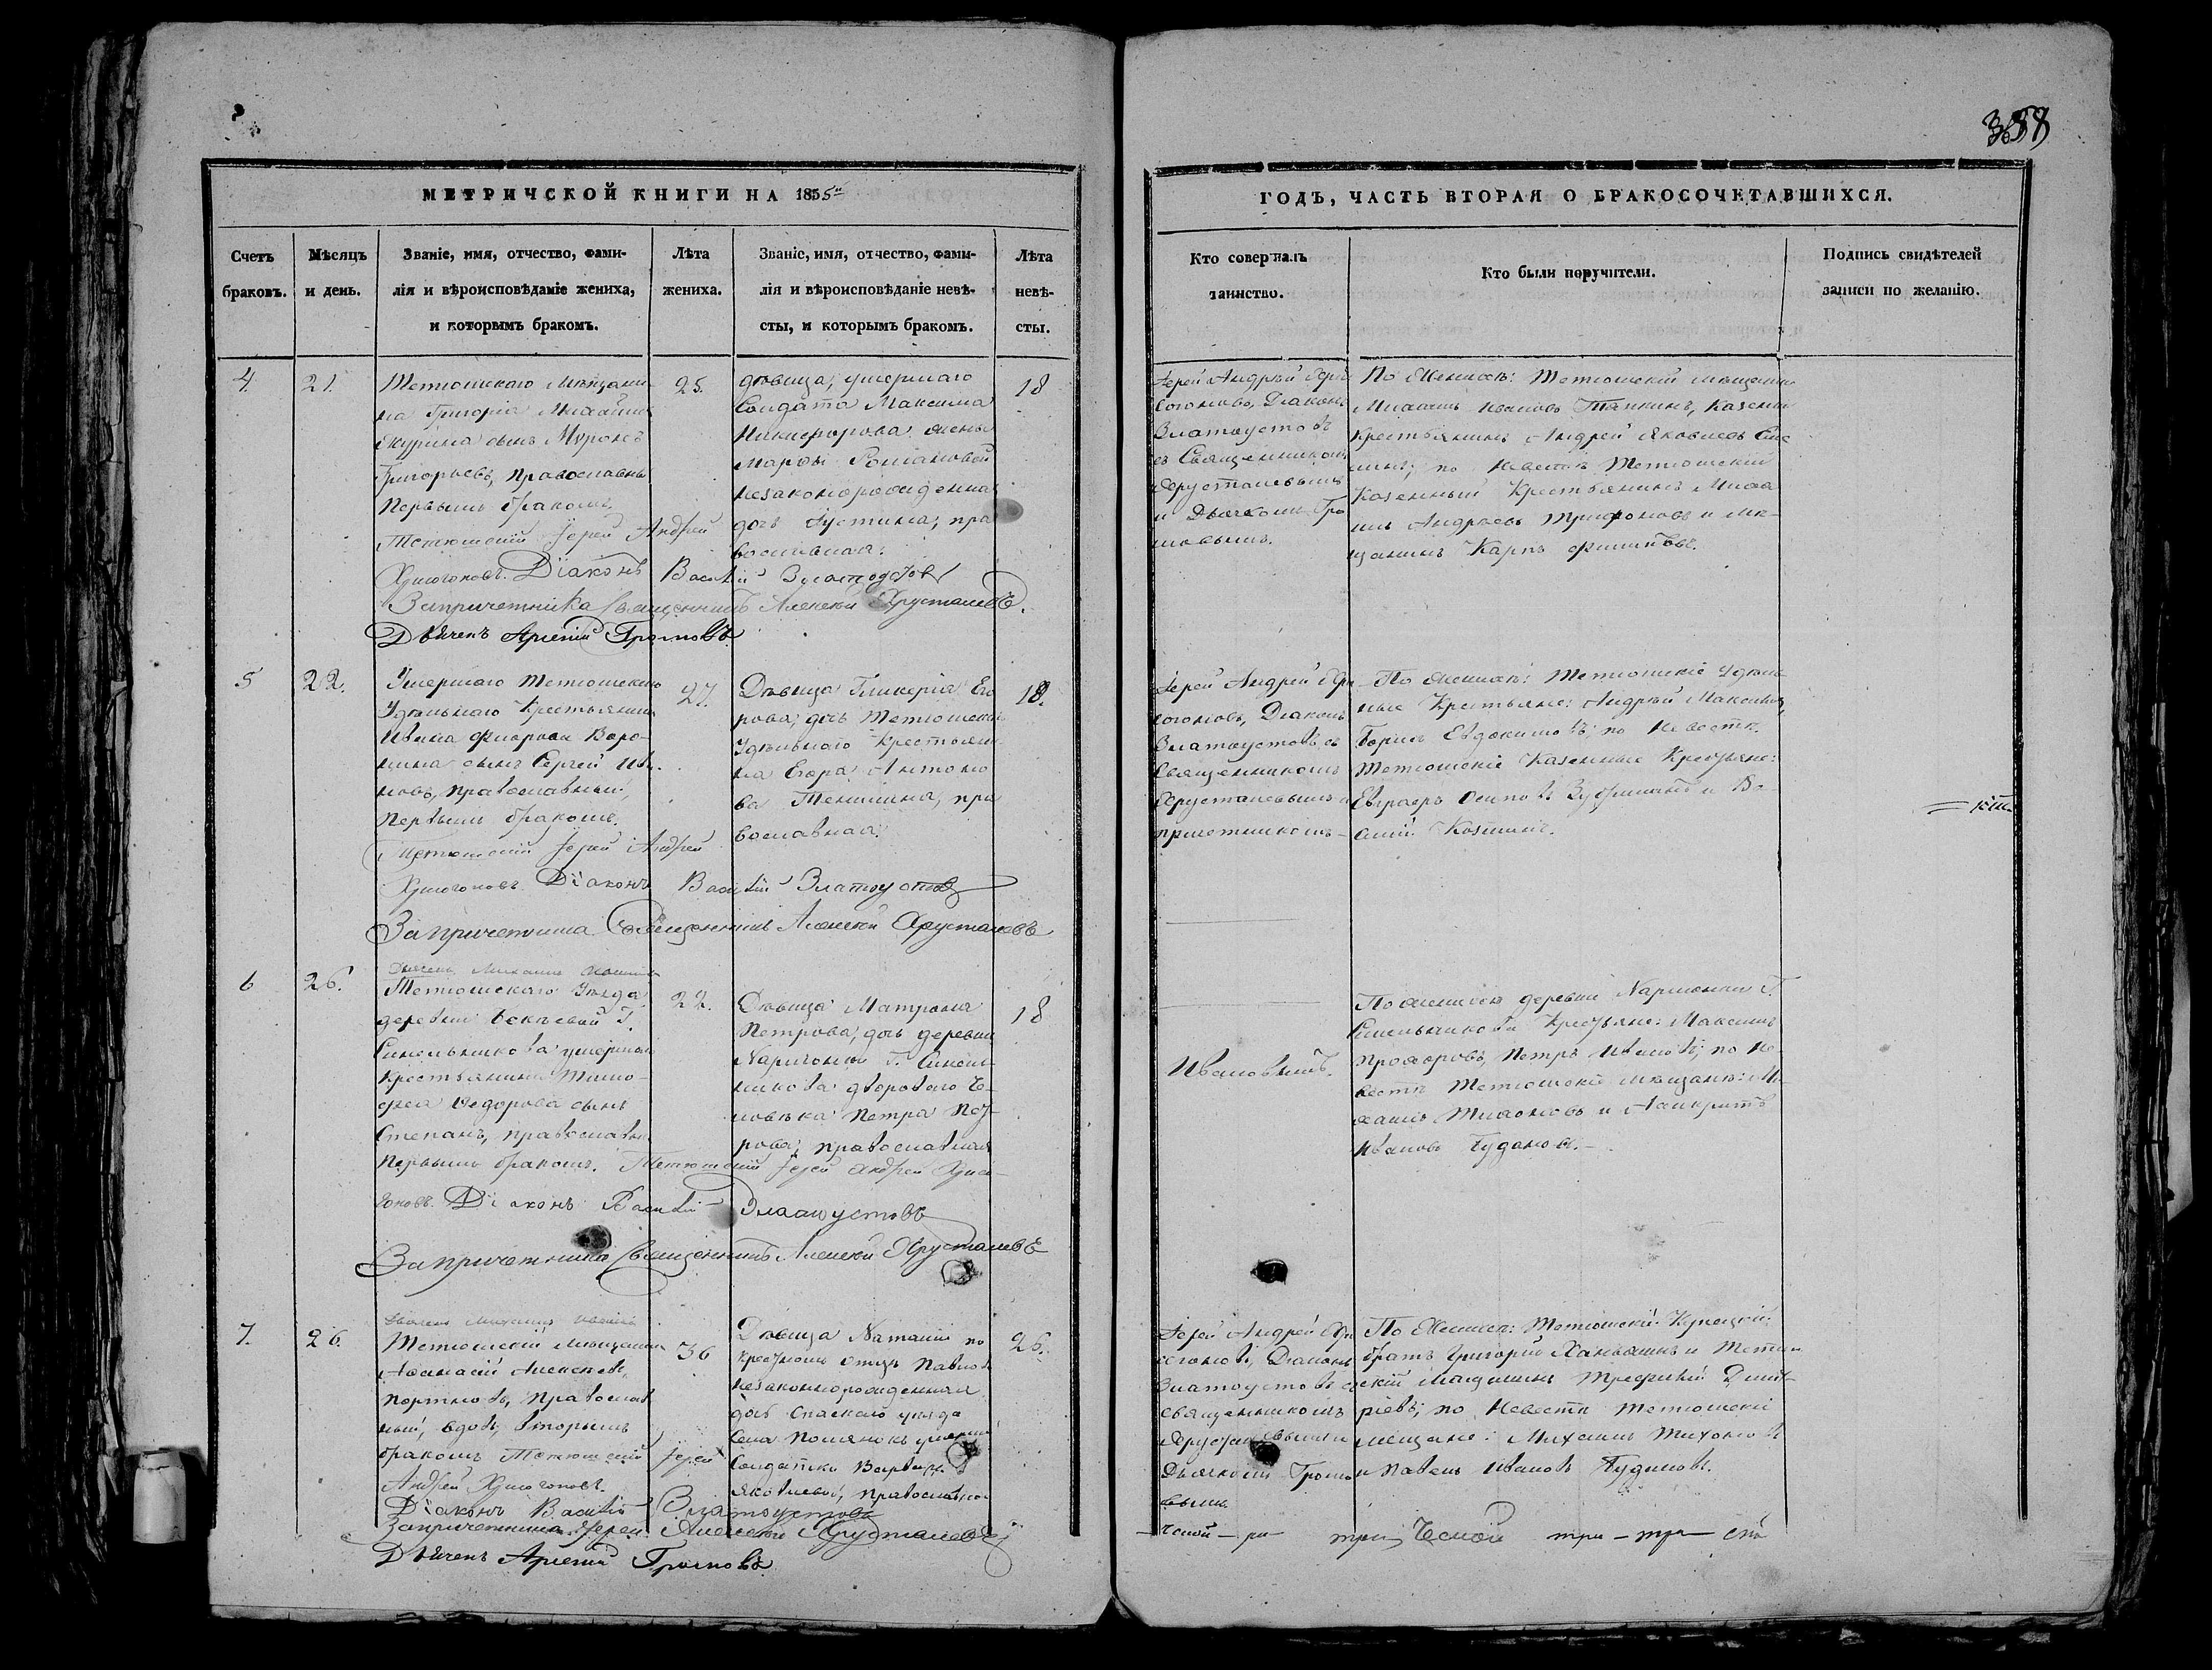 МЕТРИЧСКОЙ КНИГИ НА 1855
Счетъ браковъ.
Мѣсяцъ и день.
Званіе, имя, отчество, фами-
лія и вѣроисповѣданіе жениха,
и которымъ бракомъ.
Лѣта
жениха.
Званіе, имя, отчество, фами-
лія и вѣроисповѣданіе невѣ-
сты, и которымъ бракомъ.
Лѣта
невѣ-
сты.
4.
21.
Тетюшскаго Мѣщани-
на Григорія
сынъ
Григорьевъ, православны
Первымъ бракомъ.
Тетюшскій Іерей Андрей
Хрисогоновъ. Діаконъ Василій Златоустовъ
За причетника Священникъ Алексѣй Хрусталевъ.
Дьячекъ Арсеній Громовъ.
25.
дѣвица, умершаго
Солдата Максима
Никифорова жены
Марфы Романовой
незаконорожденна
дочь Іустина, пра
вославная.
18
5
22.
Умершаго Тетюшскаго
Удѣльнаго Крестьянина
Ивана Воро-
нина сынъ Сергей Ива-
новъ, православный,
первымъ бракомъ.
Тетюшскій Іерей Андрей
Хрисогоновъ. Діаконъ Василій Златоустовъ
За причетника Священникъ Алексѣй Хрусталевъ
27.
Дѣвица Гликерія Его
рова, дочь Тетюшскаго
Удѣльнаго Крестьяни
на Егора Антоно
ва пра
вославная.
18.
6
26.
Дьячекъ Михаилъ
Тетюшскаго Уѣзда
деревни Г.
Синельникова умершаго
Крестьянина Тимо-
фея Ѳедорова сынъ
Степанъ, православны
Первымъ бракомъ. Тетюшскій Іерей Андрей Хрисо-
гоновъ. Діаконъ Василій Златоустовъ
За причетника Священникъ Алексѣй Хрусталевъ
22.
Дѣвица Матрона
Петрова, дочь деревни
Нармонки Г. Синель-
никова двороваго Че-
ловѣка Петра Пет-
рова, православная
18
7.
26.
Дьячекъ Михаилъ
Тетюшскій Мѣщанинъ
Аѳанасій Алексѣевъ
Портновъ, Православ
ный, вдовъ, вторымъ
бракомъ Тетюшскій Іерей
Андрей Хрисогоновъ.
Діаконъ Василій Златоустовъ
За причетника Іерей Алексѣй Хрусталевъ
Дьячекъ Арсеній Громовъ
36
Дѣвица Наталія по
крестномъ отцѣ Павлова
незаконнорожденная
дочь Спаскаго уѣзда
Села Полянокъ умершей
Солдатки Варвары
Яковлевой, православная
26.
ГОДЪ, ЧАСТЬ ВТОРАЯ О БРАКОСОЧЕТАВШИХСЯ.
Кто совершалъ
таинство.
Кто были поручители.
Подпись свидѣтелей
записи по желанію.
Іерей Андрей Хри-
согоновъ, Діаконъ
Златоустовъ
съ Священникомъ
Хрусталевымъ
и Дьячкомъ Гро
мовымъ.
По Женихѣ: Тетюшскій мѣщанинъ
Михаилъ Ивановъ Казенный
Крестьянинъ Андрей Яковлевъ
по Невѣстѣ Тетюшскій
Казенный Крестьянинъ Миха
илъ Андреевъ Трифоновъ и мѣ-
щанинъ Карпъ Филиповъ.
Іерей Андрей Хри
согоновъ, Діаконъ
Златоустовъ съ
Священникомъ
Хрусталевымъ и
причетникомъ
По женихѣ: Тетюшскіе Удѣль
ные Крестьяне: Андрей Максимовъ,
Борисъ Евдокимовъ; по Невестѣ
Тетюшскіе Казенные Крестьяне:
Евграфъ Осиповъ и Ва-
силій Козминъ.
Ивановымъ.
По женихѣ деревни Нармонки Г.
Синельникова Крестьяне: Максимъ
Прохоровъ, Петръ Ивановъ; по Не-
вестѣ Тетюшскіе мѣщане: Ми-
хаилъ Тихоновъ и
Ивановъ
Іерей Андрей Хри
согоновъ, Діаконъ
Златоустовъ съ
Священникомъ
Хрусталевымъ и
Дьячкомъ Громо
вымъ.
По Женихѣ: Тетюшскій Купецкій
братъ Григорій и Тетю
скій Мещанинъ Трефилій Дмит
ріевъ; по Невестѣ Тетюшскіе
мещане: Михаилъ Тихоновъ
и Павелъ Ивановъ